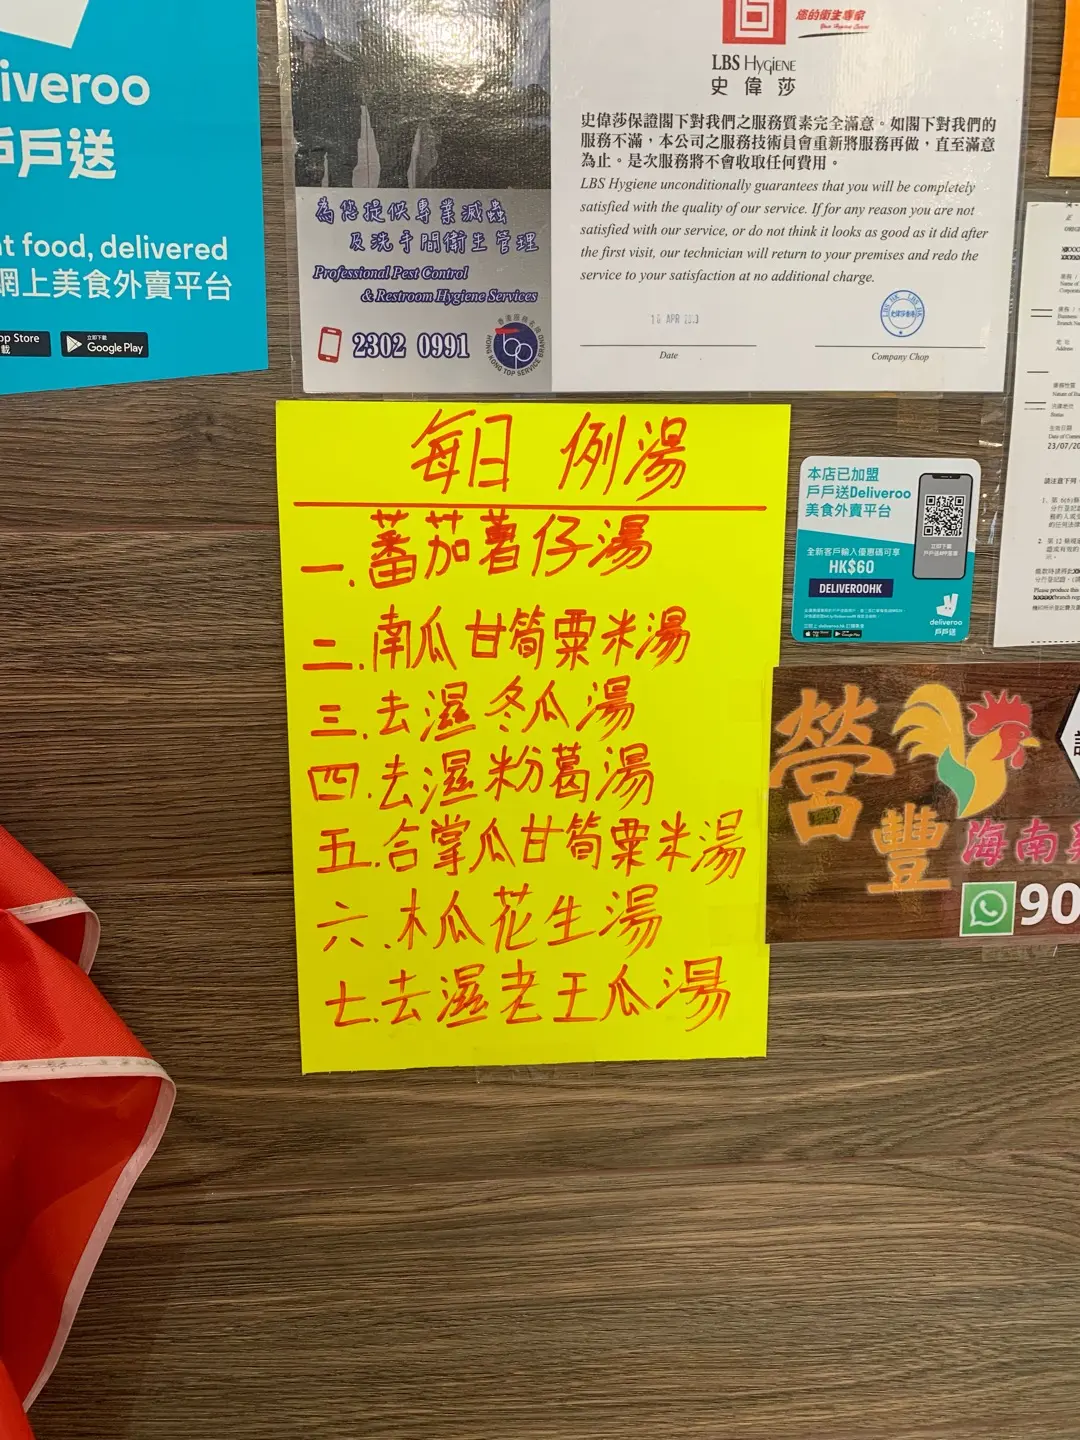 iveroo
戶戶送
t food, delivered
網上美食外賣平台
pp Store
載
立即下載
Google Play
為您提供專業滅蟲
及洗手間衞生管理
Professional Pest Control
& Restroom Hygiene Services
2302 0991
HONG KONG TOP SERVICE BRAND
您的衞生專家
LBS HYGIENE
史偉莎
史偉莎保證閣下對我們之服務質素完全滿意。如閣下對我們的
服務不滿，本公司之服務技術員會重新將服務再做，直至滿意
為止。是次服務將不會收取任何費用。
LBS Hygiene unconditionally guarantees that you will be completely
satisfied with the quality of our service. If for any reason you are not
satisfied with our service, or do not think it looks as good as it did after
the first visit, our technician will return to your premises and redo the
service to your satisfaction at no additional charge.
APR
Date
Company Chop
每日 例湯
一.蕃茄薯仔湯
二.南瓜甘筍粟米湯
三.去濕冬瓜湯
四.去濕粉葛湯
五.合掌瓜甘筍粟米湯
六.木瓜花生湯
七.去濕老王瓜湯
本店已加盟
戶戶送Deliveroo
美食外賣平台
全新客戶輸入優惠碼可享
HK$60
DELIVEROOHK
立即下載
deliveroo
戶戶送
營豐
海南
90
地址
Address
Status
23/07/20
Please produce this